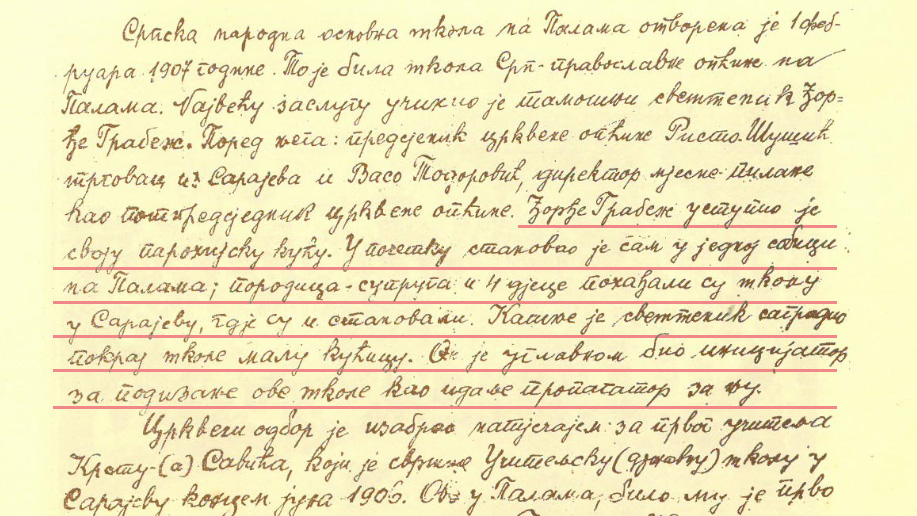 Српска народна основна школа на Палама отворена је 1 феб-
руара 1907 године. То је била школа Срп-православне опћине на
Палама. Највећу заслугу учинио је тамошњи свештеник Ђор-
ђе Грабеж. Поред њега: предсједник црквене опћине Ристо Шушић
трговац из Сарајева и Васо Тодоровић, директор мјесне пилане
као потпредсједник црквене опћине. Ђорђе Грабеж уступио је
своју парохијску кућу. У почетку становао је сам у једној собици
на Палама; породица-супруга и 4 дјеце похађали су школу
у Сарајеву, гдје су и становали. Касније је свештеник саградио
покрај школе малу кућицу. Он је углавном био иницијатор
за подизање ове школе као и даље пропагатор за њу.
Црквени одбор је изабрао натјечајем за првог учитеља
Крсту-(а) Савића, који је свршио Учитељску (државну) школу у
Сарајеву концем јуна 1906. Ово у Палама, било му је прво